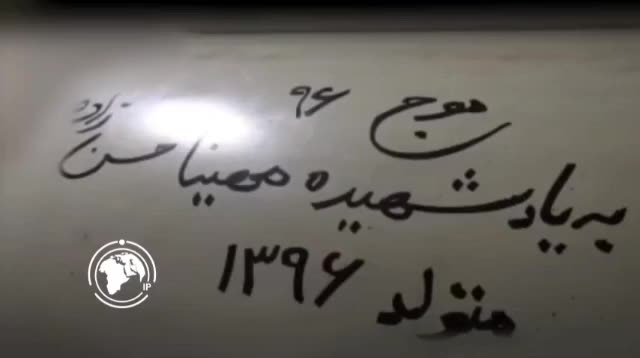 موج ۹۶
به یاد شهیده مهینا حسن زاده
متولد ۱۳۹۶
IP